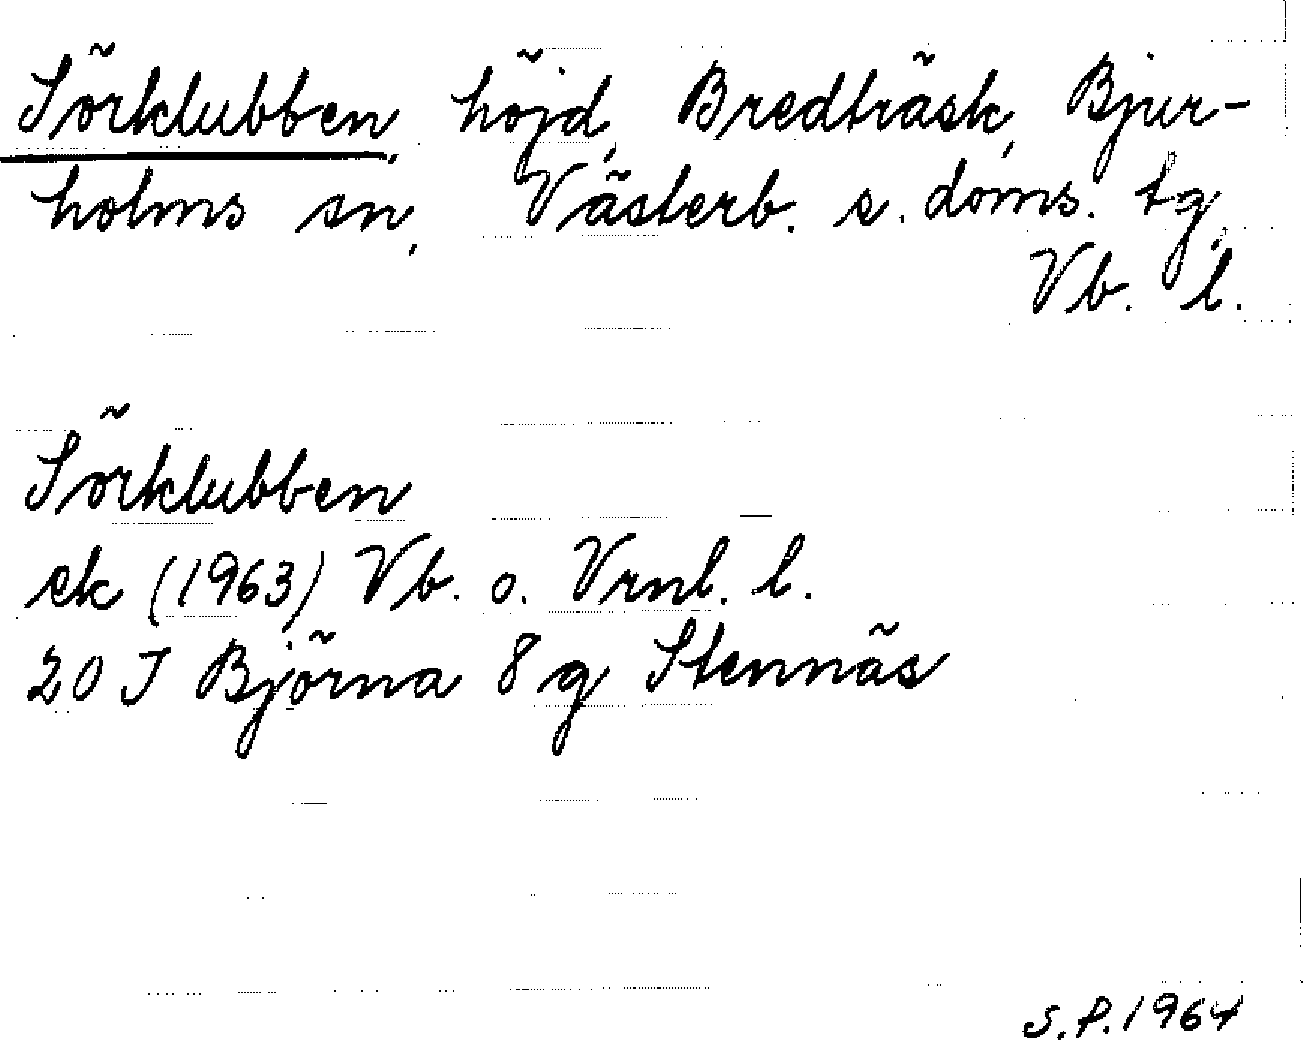 Sörklubben, höjd, Bredträsk, Bjur-
holms sn, Västerb. s. doms. tg,
Vb. l.
Sörklubben
ek (1963) Vb. o. Vrnl. l.
20 J Björna 8 g Stennäs
S.P. 1964